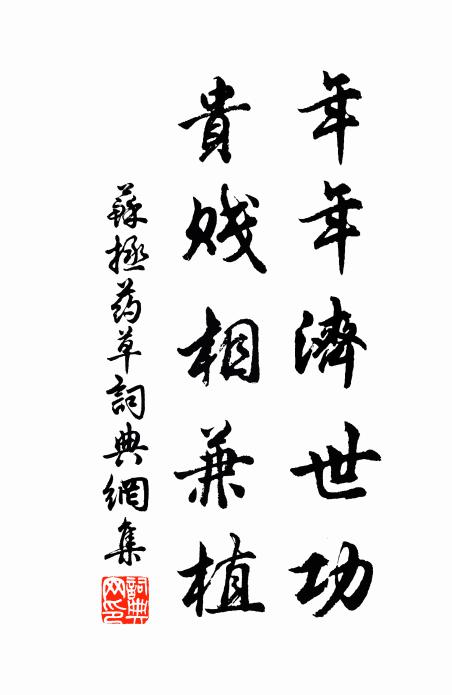 年年濟世功
貴賤相兼植
蘇拯药草詞典網集
詞典
网印